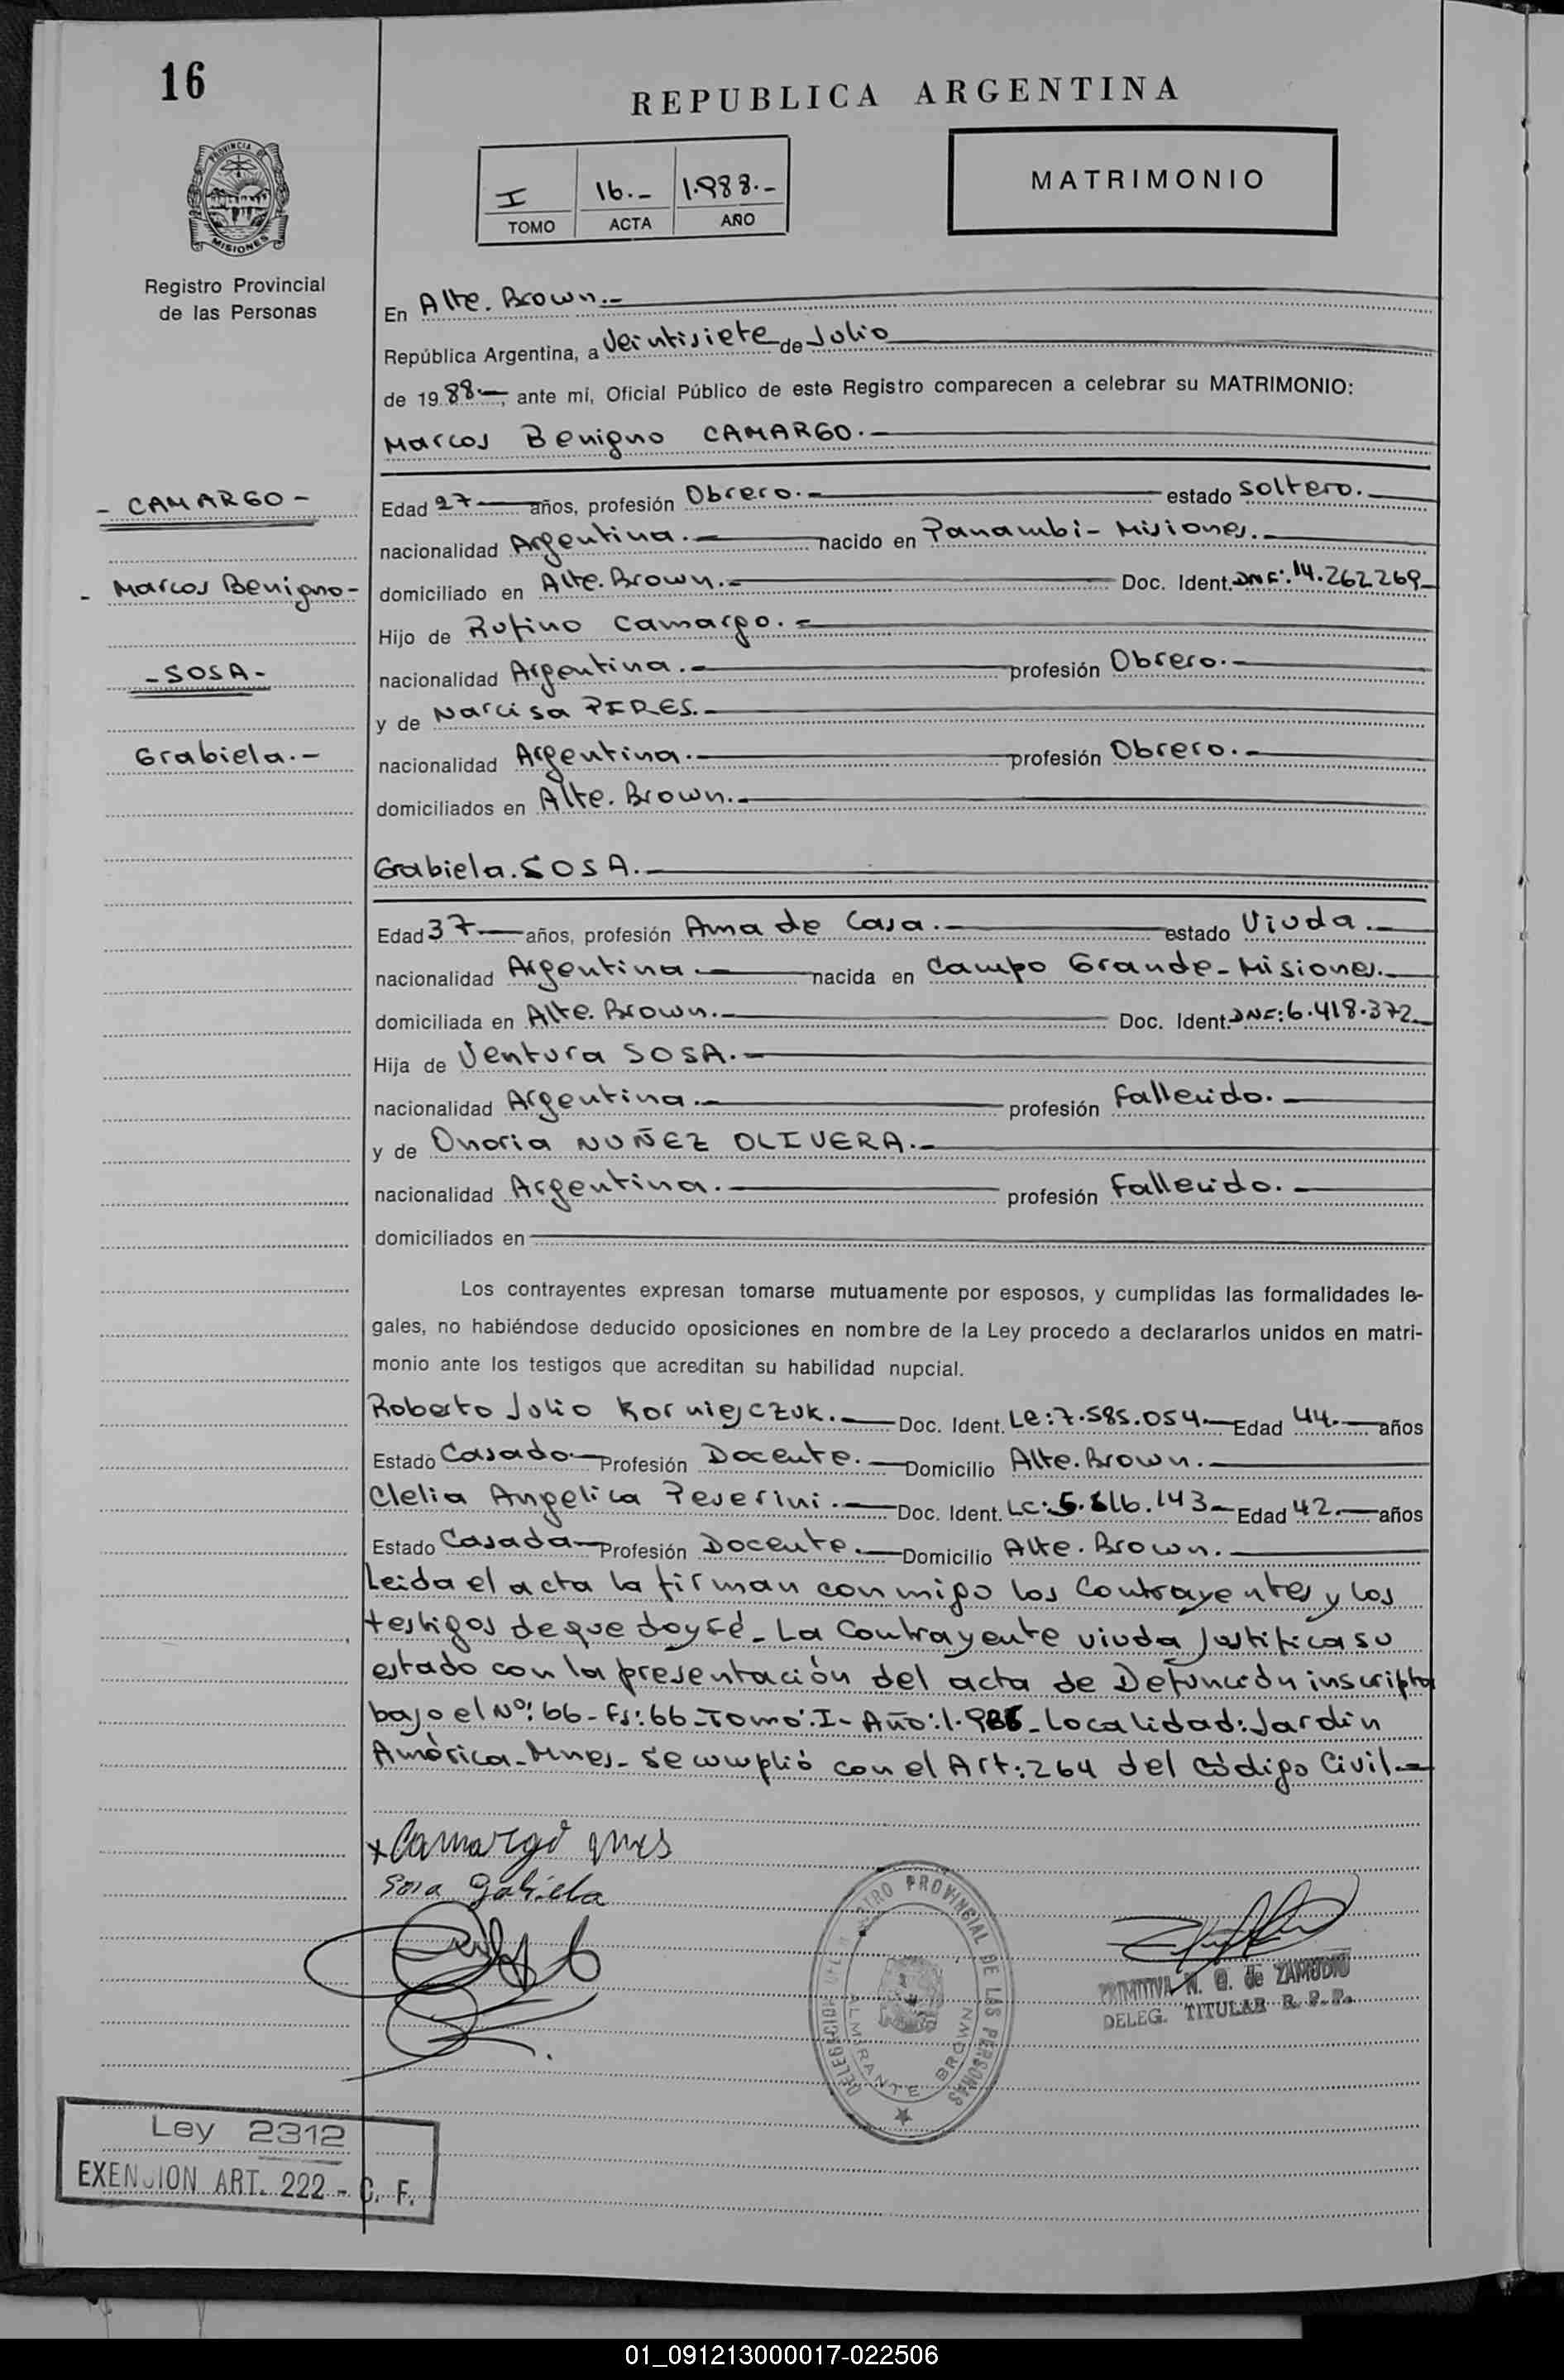 16
REPUBLICA ARGENTINA
PROVINCIA DE MISIONES
Registro Provincial
de las Personas
I 16.- 1.988.-
TOMO ACTA AÑO
MATRIMONIO
En Alte. Brown.-
República Argentina, a Veintisiete de Julio
de 19 88.-, ante mí, Oficial Público de este Registro comparecen a celebrar su MATRIMONIO:
Marcos Benigno CAMARGO.-
- CAMARGO -
Edad 27 años, profesión Obrero.- estado Soltero.-
nacionalidad Argentina.- nacido en Panambi - Misiones.-
- Marcos Benigno -
domiciliado en Alte. Brown.- Doc. Ident. DNI: 14.262269-
Hijo de Rufino Camargo.-
- SOSA -
nacionalidad Argentina.- profesión Obrero.-
y de Narcisa PIRES.-
Grabiela.-
nacionalidad Argentina.- profesión Obrero.-
domiciliados en Alte. Brown.-
Grabiela. SOSA.-
Edad 37 años, profesión Ama de Casa.- estado Viuda.-
nacionalidad Argentina.- nacida en Campo Grande - Misiones.-
domiciliada en Alte. Brown.- Doc. Ident. DNI: 6.418.372.-
Hija de Ventura SOSA.-
nacionalidad Argentina.- profesión fallecido.-
y de Onoria NUÑEZ OLIVERA.-
nacionalidad Argentina.- profesión fallecido.-
domiciliados en
Los contrayentes expresan tomarse mutuamente por esposos, y cumplidas las formalidades le-
gales, no habiéndose deducido oposiciones en nombre de la Ley procedo a declararlos unidos en matri-
monio ante los testigos que acreditan su habilidad nupcial.
Roberto Julio Korniejczuk.- Doc. Ident. Le: 7.585.054.- Edad 44.- años
Estado Casado.- Profesión Docente.- Domicilio Alte. Brown.-
Clelia Angelica Peverini.- Doc. Ident. LC: 5.816.143- Edad 42.- años
Estado Casada- Profesión Docente.- Domicilio Alte. Brown.-
Leida el acta la firman conmigo los Contrayentes y los
testigos de que doy Fé.- La Contrayente viuda Justifica su
estado con la presentación del acta de Defunción inscripta
bajo el Nº: 66 - Fs: 66 - Tomo: I - Año: 1.986 - Localidad: Jardin
América - Mnes - Se cumplió con el Art: 264 del Código Civil.-
x Camargo
Sosa Gabriela
DELEGACION DEL REGISTRO PROVINCIAL DE LAS PERSONAS
ALMIRANTE BROWN
PRIMITIVA N. G. de ZAMUDIO
DELEG. TITULAR R. P. P.
Ley 2312
EXENCION ART. 222 - C. F.
01_091213000017-022506